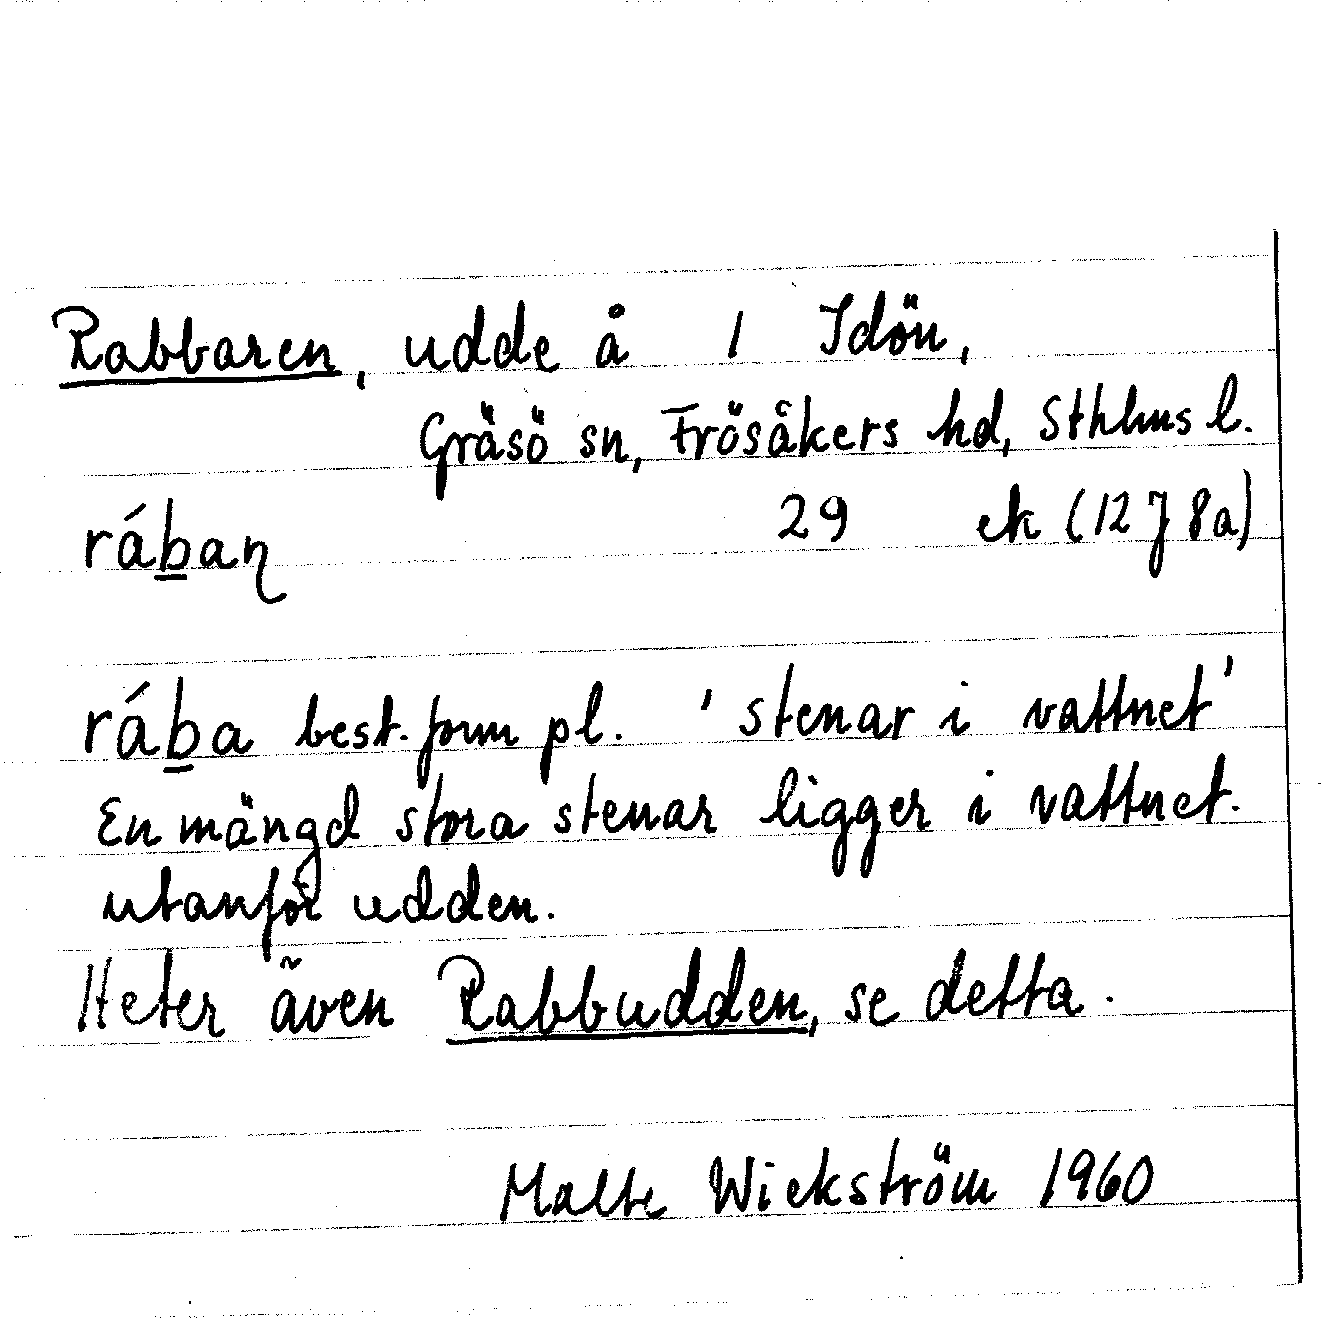 Rabbaren, udde å 1 Idön,
Gräsö sn, Frösåkers hd, Sthlms l.
rában 29 ek (12 J 8a)
rába best. form pl. 'stenar i vattnet'
En mängd stora stenar ligger i vattnet.
utanför udden.
Heter även Rabbudden, se detta.
Malte Wickström 1960